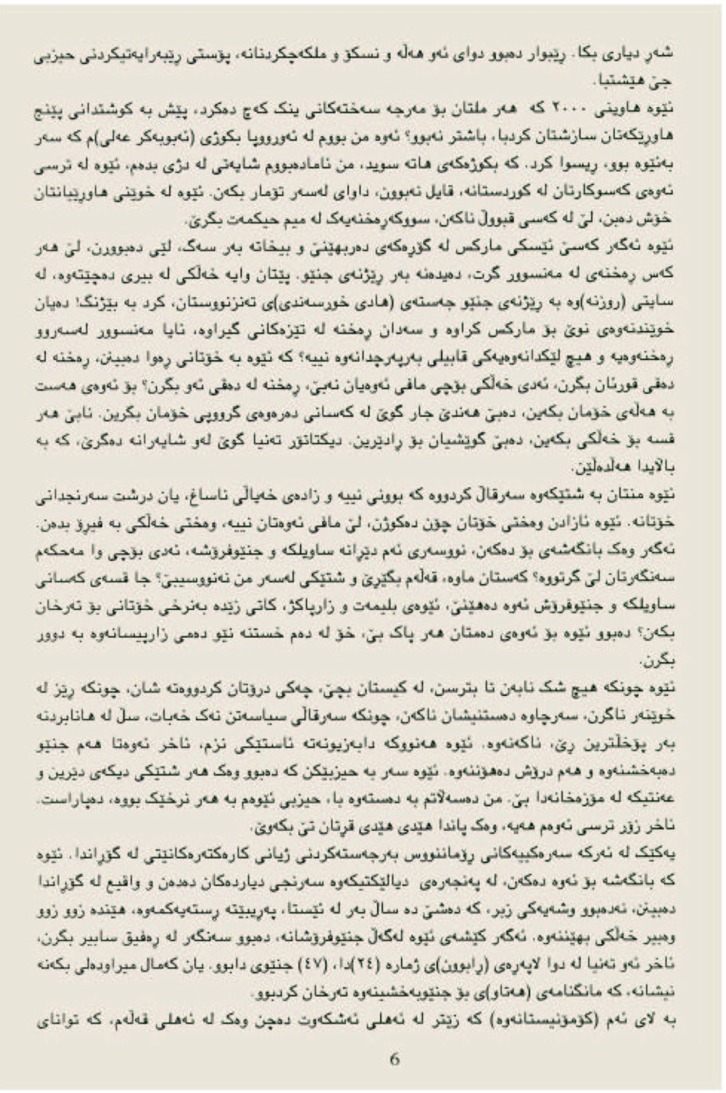 شەڕ دیاری بکا. ڕێبوار دەبوو دوای ئەو هەڵە و نسکۆ و ملکەچکردنانە، پۆستی ڕێبەرایەتیکردنی حیزبی
جێ هێشتبا.
ئێوە هاوینی ٢٠٠٠ کە هەر ملتان بۆ مەرجە سەختەکانی ینک کەچ دەکرد، پێش بە کوشتدانی پێنج
هاوڕێکەتان سازشتان کردبا، باشتر نەبوو؟ ئەوە من بووم لە ئەورووپا بکوژی (ئەبوبەکر عەلی)م کە سەر
بەئێوە بوو، ڕیسوا کرد. کە بکوژەکەی هاتە سوید، من ئامادەبووم شایەتی لە دژی بدەم، ئێوە لە ترسی
ئەوەی کەسوکارتان لە کوردستانە، قایل نەبوون، داوای لەسەر تۆمار بکەن. ئێوە لە خوێنی هاوڕێیانتان
خۆش دەبن، لێ لە کەسی قبووڵ ناکەن، سووکەڕەخنەیەک لە میم حیکمەت بگرێ.
ئێوە ئەگەر کەسێ ئێسکی مارکس لە گۆڕەکەی دەربهێنێ و بیخاتە بەر سەگ، لێی دەبوورن، لێ هەر
کەس ڕەخنەی لە مەنسوور گرت، دەیدەنە بەر ڕێژنەی جنێو. پێتان وایە خەڵکی لە بیری دەچێتەوە، لە
سایتی (روژنە)وە بە ڕێژنەی جنێو جەستەی (هادی خورسەندی)ی تەنزنووستان، کرد بە بێژنگ! دەیان
خوێندنەوەی نوێ بۆ مارکس کراوە و سەدان ڕەخنە لە تێزەکانی گیراوە، ئایا مەنسوور لەسەروو
ڕەخنەوەیە و هیچ لێکدانەوەیەکی قابیلی بەرپەرچدانەوە نییە؟ کە ئێوە بە خۆتانی ڕەوا دەبینن، ڕەخنە لە
دەقی قورئان بگرن، ئەدی خەڵکی بۆچی مافی ئەوەیان نەبێ، ڕەخنە لە دەقی ئەو بگرن؟ بۆ ئەوەی هەست
بە هەڵەی خۆمان بکەین، دەبێ هەندێ جار گوێ لە کەسانی دەرەوەی گرووپی خۆمان بگرین. نابێ هەر
قسە بۆ خەڵکی بکەین، دەبێ گوێشیان بۆ ڕادێرین. دیکتاتۆر تەنیا گوێ لەو شایەرانە دەگرێ، کە بە
باڵایدا هەڵدەڵێن.
ئێوە منتان بە شتێکەوە سەرقاڵ کردووە کە بوونی نییە و زادەی خەیاڵی ناساغ، یان درشت سەرنجدانی
خۆتانە. ئێوە ئازادن وەختی خۆتان چۆن دەکوژن، لێ مافی ئەوەتان نییە، وەختی خەڵکی بە فیڕۆ بدەن.
ئەگەر وەک بانگەشەی بۆ دەکەن، نووسەری ئەم دێڕانە ساویلکە و جنێوفرۆشە، ئەدی بۆچی وا مەحکەم
سەنگەرتان لێ گرتووە؟ کەستان ماوە، قەڵەم بگێڕێ و شتێکی لەسەر من نەنووسیبێ؟ جا قسەی کەسانی
ساویلکە و جنێوفرۆش ئەوە دەهێنێ، ئێوەی بلیمەت و زارپاکژ، کاتی زێدە بەنرخی خۆتانی بۆ تەرخان
بکەن؟ دەبوو ئێوە بۆ ئەوەی دەمتان هەر پاک بێ، خۆ لە دەم خستنە نێو دەمی زارپیسانەوە بە دوور
بگرن.
ئێوە چونکە هیچ شک نابەن تا بترسن، لە کیستان بچێ، چەکی درۆتان کردووەتە شان، چونکە ڕێز لە
خوێنەر ناگرن، سەرچاوە دەستنیشان ناکەن، چونکە سەرقاڵی سیاسەتن نەک خەبات، سڵ لە هانابردنە
بەر پۆخڵترین ڕێ، ناکەنەوە. ئێوە هەنووکە دابەزیونەتە ئاستێکی نزم، ئاخر ئەوەتا هەم جنێو
دەبەخشنەوە و هەم درۆش دەهۆننەوە. ئێوە سەر بە حیزبێکن کە دەبوو وەک هەر شتێکی دیکەی دێرین و
عەنتیکە لە مۆزەخانەدا بێ. من دەسەڵاتم بە دەستەوە با، حیزبی ئێوەم بە هەر نرخێک بووە، دەپاراست.
ئاخر زۆر ترسی ئەوەم هەیە، وەک پاندا هێدی هێدی قڕتان تێ بکەوێ.
یەکێک لە ئەرکە سەرەکییەکانی ڕۆماننووس بەرجەستەکردنی ژیانی کارەکتەرەکانێتی لە گۆڕاندا. ئێوە
کە بانگەشە بۆ ئەوە دەکەن، لە پەنجەرەی دیالێکتیکەوە سەرنجی دیاردەکان دەدەن و واقیع لە گۆڕاندا
دەبینن، نەدەبوو وشەیەکی زبر، کە دەشێ دە ساڵ بەر لە ئێستا، پەڕیبێتە ڕستەیەکمەوە، هێندە زوو زوو
وەبیر خەڵکی بهێننەوە. ئەگەر کێشەی ئێوە لەگەڵ جنێوفرۆشانە، دەبوو سەنگەر لە ڕەفیق سابیر بگرن،
ئاخر ئەو تەنیا لە دوا لاپەڕەی (ڕابوون)ی ژمارە (٢٤)دا، (٤٧) جنێوی دابوو. یان کەمال میراودەلی بکەنە
نیشانە، کە مانگنامەی (هەتاو)ی بۆ جنێوبەخشینەوە تەرخان کردبوو.
بە لای ئەم (کۆمۆنیستانەوە) کە زێتر لە ئەهلی ئەشکەوت دەچن وەک لە ئەهلی قەڵەم، کە توانای
6